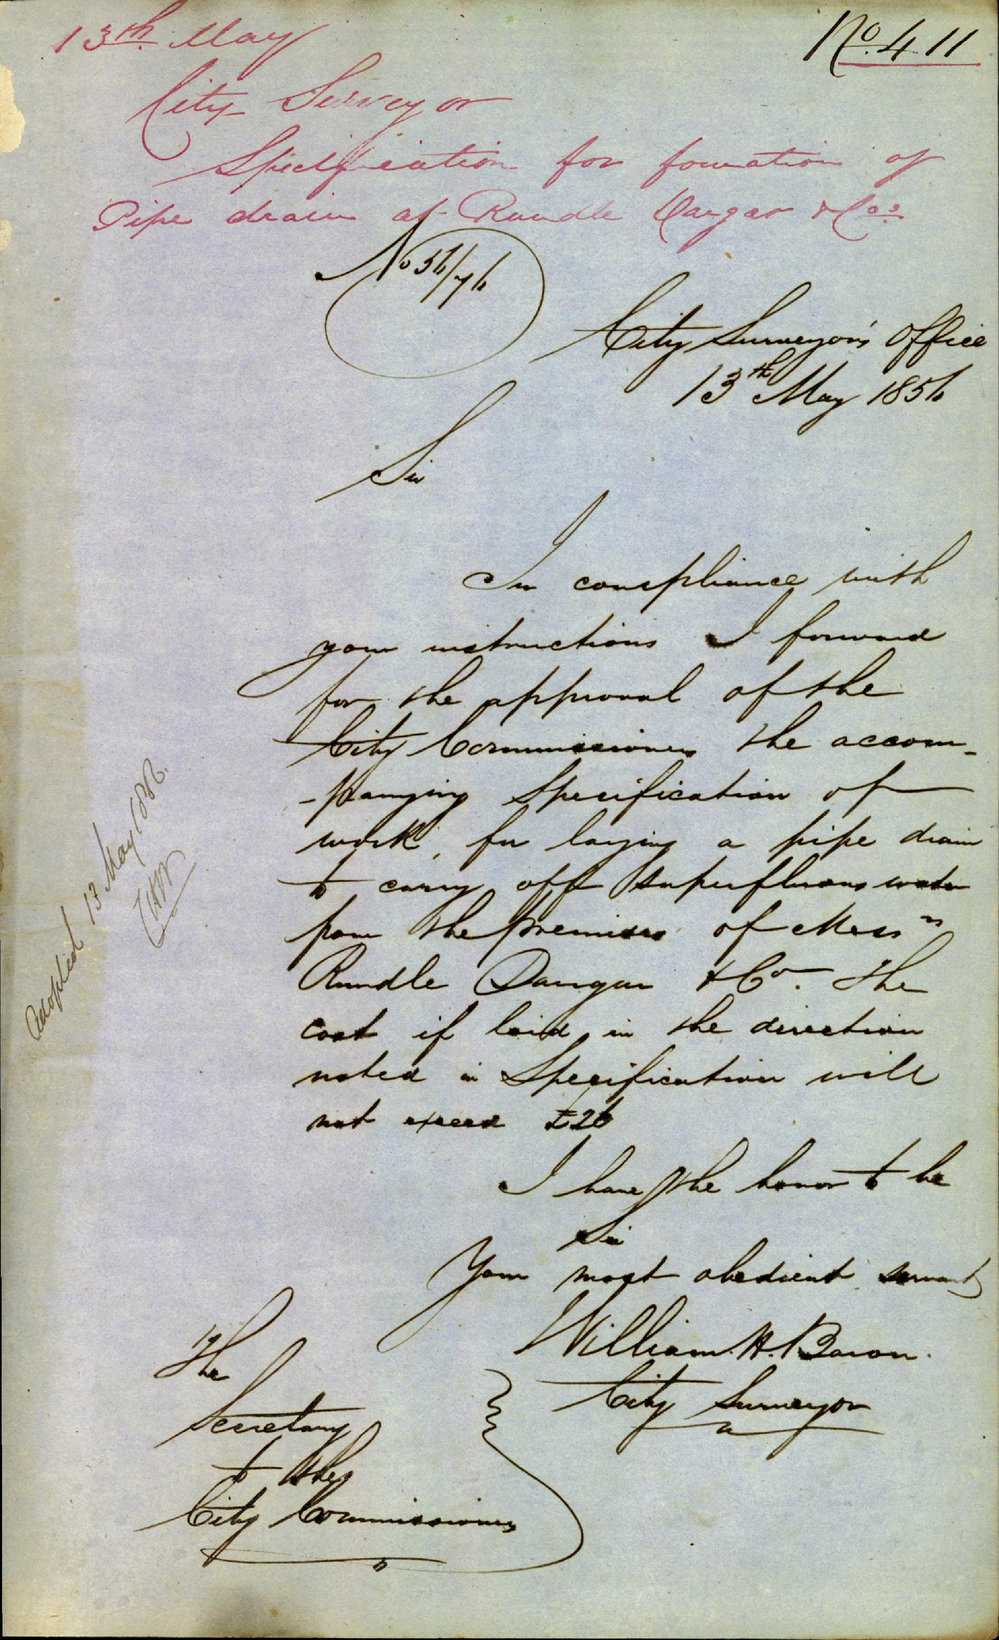 13th May
No. 411
City Surveyor
Specification for formation of
Pipe drain at Rundle Dangar & Cos.
No 56/76
City Surveyor's Office
13th May 1856
Sir
In compliance with
your instructions I forward
for the approval of the
City Commissioners the accom-
-panying Specification of
work, for laying a pipe drain
to carry off superfluous water
from the premises of Messrs
Rundle Dangar & Co. The
cost if laid in the direction
noted in Specification will
not exceed £26
I have the honor to be
Sir
Your most obedient servant
William. H. Baron.
City Surveyor
The
Secretary
to the
City Commissioners
Adopted 13 May 1856.